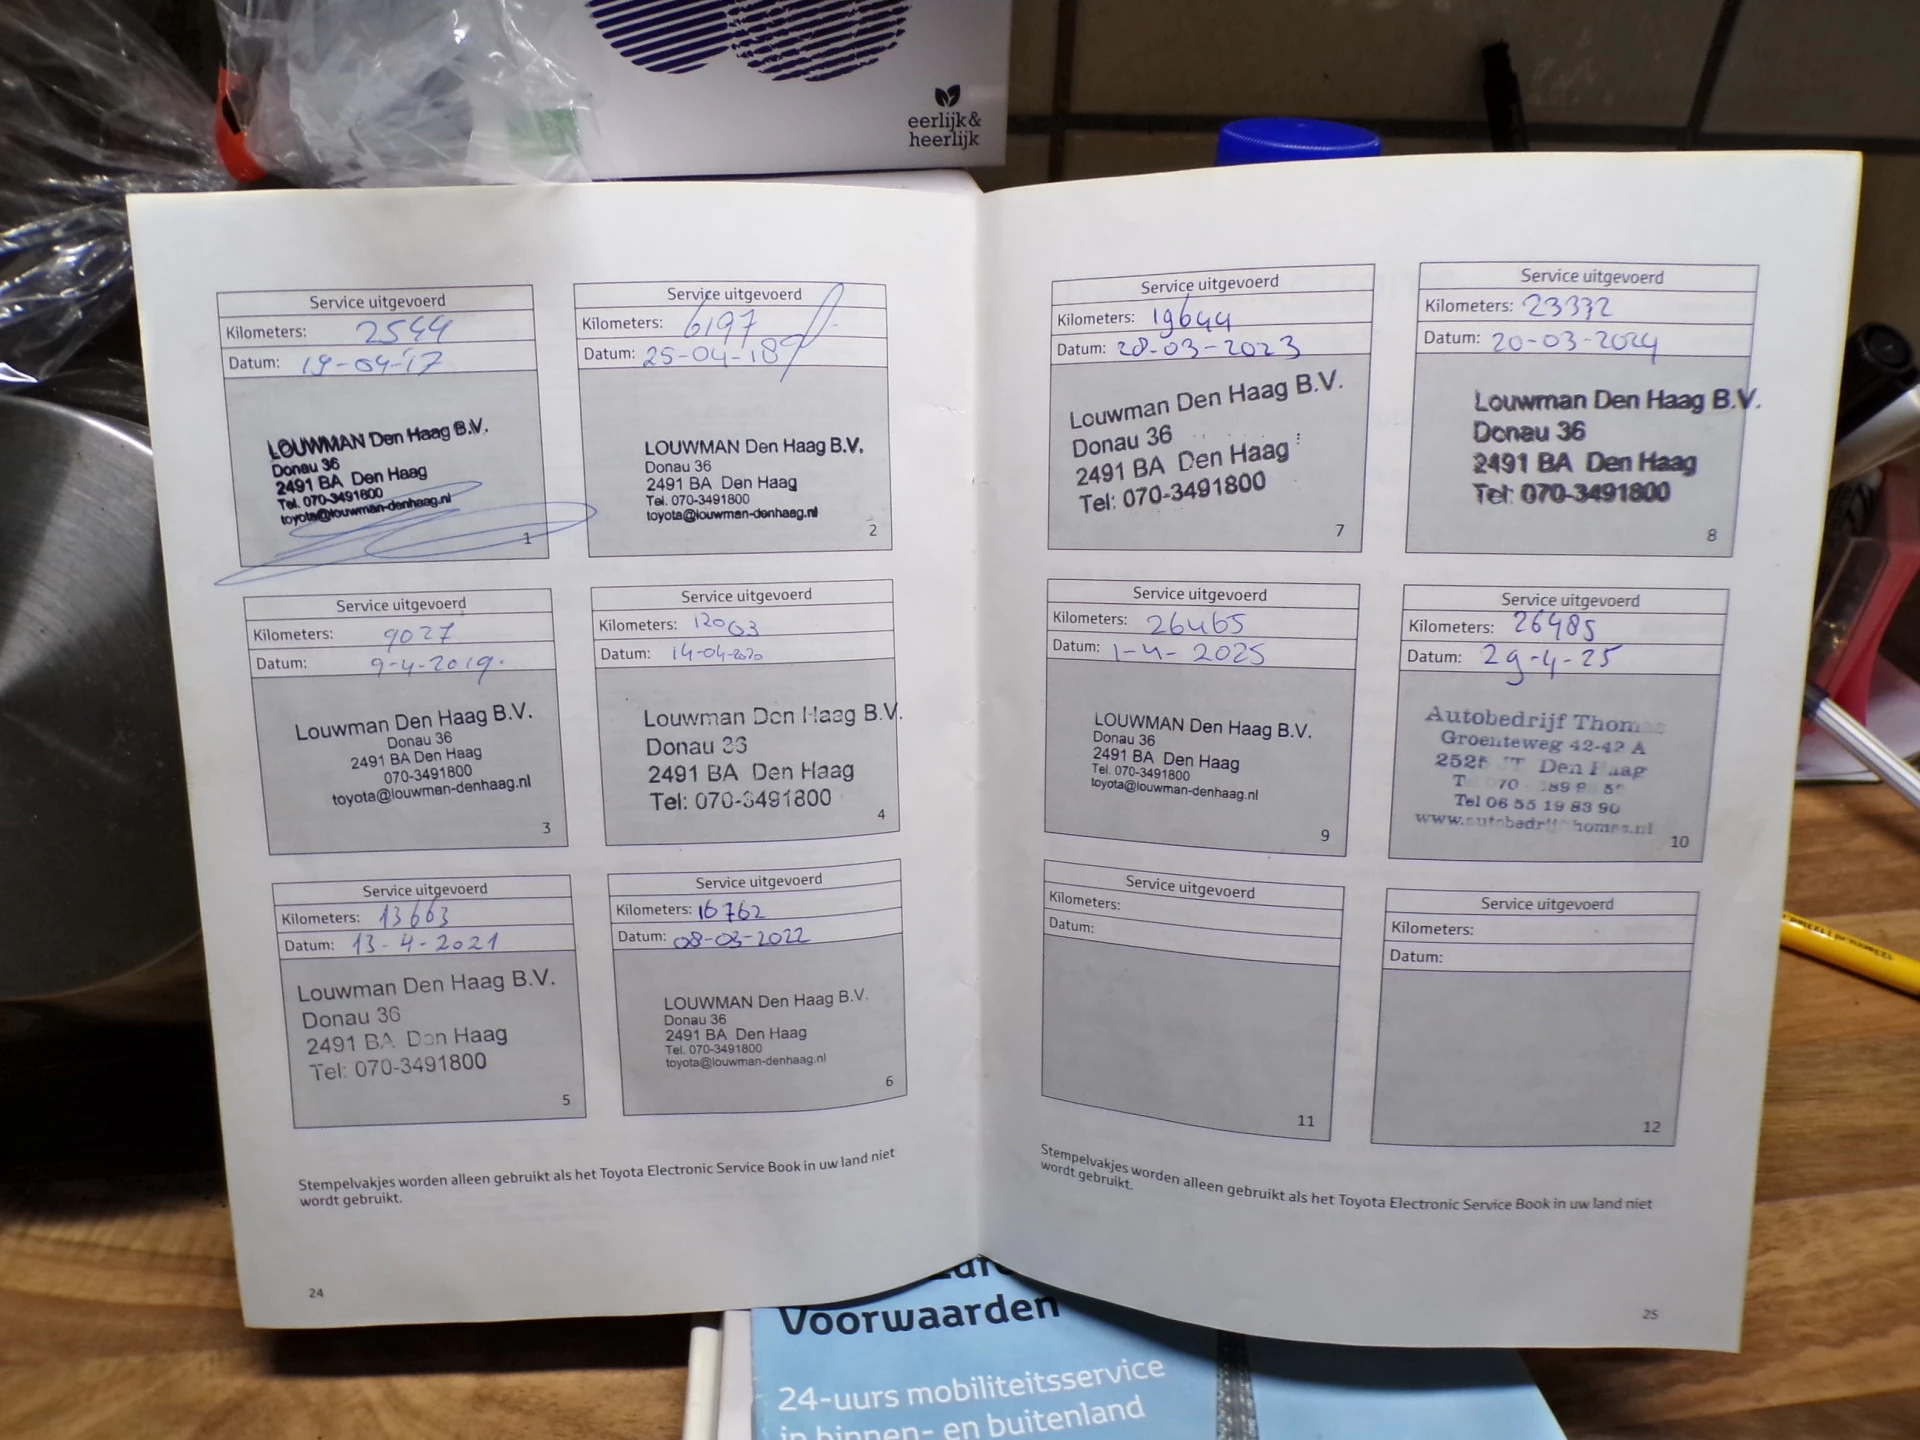 eerlijk&
heerlijk
Service uitgevoerd
Kilometers: 2544
Datum: 19-04-17
LOUWMAN Den Haag B.V.
Donau 36
2491 BA Den Haag
Tel. 070-3491800
toyota@louwman-denhaag.nl
1
Service uitgevoerd
Kilometers: 6197
Datum: 25-04-18
LOUWMAN Den Haag B.V.
Donau 36
2491 BA Den Haag
Tel. 070-3491800
toyota@louwman-denhaag.nl
2
Service uitgevoerd
Kilometers: 9027
Datum: 9-4-2019.
Louwman Den Haag B.V.
Donau 36
2491 BA Den Haag
070-3491800
toyota@louwman-denhaag.nl
3
Service uitgevoerd
Kilometers: 12003
Datum: 14-04-2020
Louwman Den Haag B.V.
Donau 36
2491 BA Den Haag
Tel: 070-3491800
4
Service uitgevoerd
Kilometers: 13663
Datum: 13-4-2021
Louwman Den Haag B.V.
Donau 36
2491 BA Den Haag
Tel: 070-3491800
5
Service uitgevoerd
Kilometers: 16762
Datum: 08-03-2022
LOUWMAN Den Haag B.V.
Donau 36
2491 BA Den Haag
Tel. 070-3491800
toyota@louwman-denhaag.nl
6
Stempelvakjes worden alleen gebruikt als het Toyota Electronic Service Book in uw land niet
wordt gebruikt.
24
Service uitgevoerd
Kilometers: 19644
Datum: 28-03-2023
Louwman Den Haag B.V.
Donau 36
2491 BA Den Haag
Tel: 070-3491800
7
Service uitgevoerd
Kilometers: 23332
Datum: 20-03-2024
Louwman Den Haag B.V.
Donau 36
2491 BA Den Haag
Tel: 070-3491800
8
Service uitgevoerd
Kilometers: 26465
Datum: 1-4-2025
LOUWMAN Den Haag B.V.
Donau 36
2491 BA Den Haag
Tel. 070-3491800
toyota@louwman-denhaag.nl
9
Service uitgevoerd
Kilometers: 26485
Datum: 29-4-25
Autobedrijf Thomas
Groenteweg 42-42 A
Den Haag
Tel 06 55 19 83 90
www.autobedrijfthomas.nl
10
Service uitgevoerd
Kilometers:
Datum:
11
Service uitgevoerd
Kilometers:
Datum:
12
Stempelvakjes worden alleen gebruikt als het Toyota Electronic Service Book in uw land niet
wordt gebruikt.
25
Voorwaarden
24-uurs mobiliteitsservice
in binnen- en buitenland